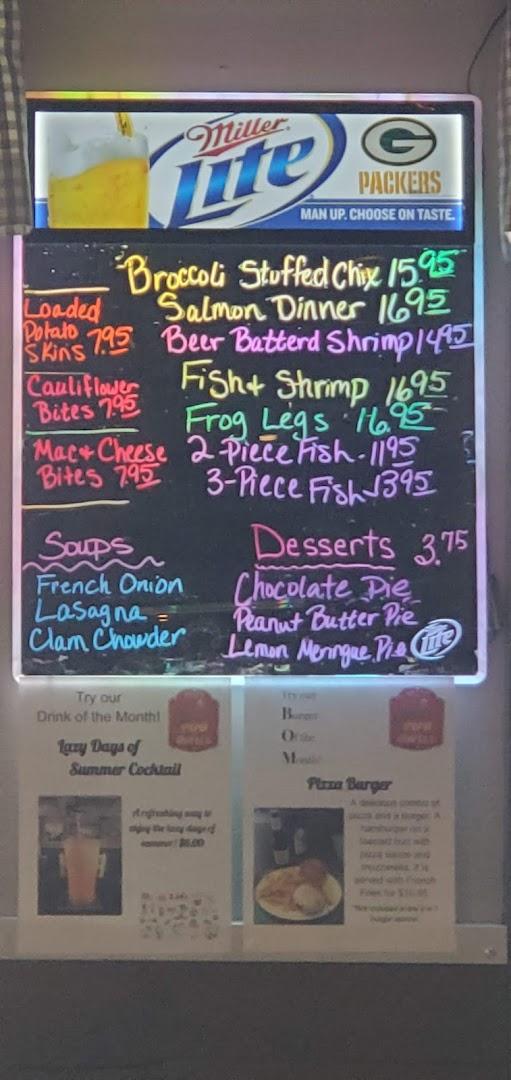 Miller
Lite
G
PACKERS
MAN UP. CHOOSE ON TASTE.
Broccoli Stuffed Chix 15.95
Salmon Dinner 16.95
Beer Batterd Shrimp 14.95
Fish + Shrimp 16.95
Frog Legs 16.95
2-Piece Fish - 11.95
3-Piece Fish 13.95
Loaded
Potato
Skins 7.95
Cauliflower
Bites 7.95
Mac + Cheese
Bites 7.95
Soups
French Onion
Lasagna
Clam Chowder
Desserts 3.75
Chocolate Pie
Peanut Butter Pie
Lemon Meringue Pie
Lite
Try our
Drink of the Month!
Lazy Days of
Summer Cocktail
A refreshing way to
enjoy the lazy days of
summer! $6.00
Try our
Burger
Of the
Month!
Pizza Burger
A delicious combo of
pizza and a burger. A
hamburger on a
toasted bun with
pizza sauce and
mozzarella. It is
served with French
Fries for